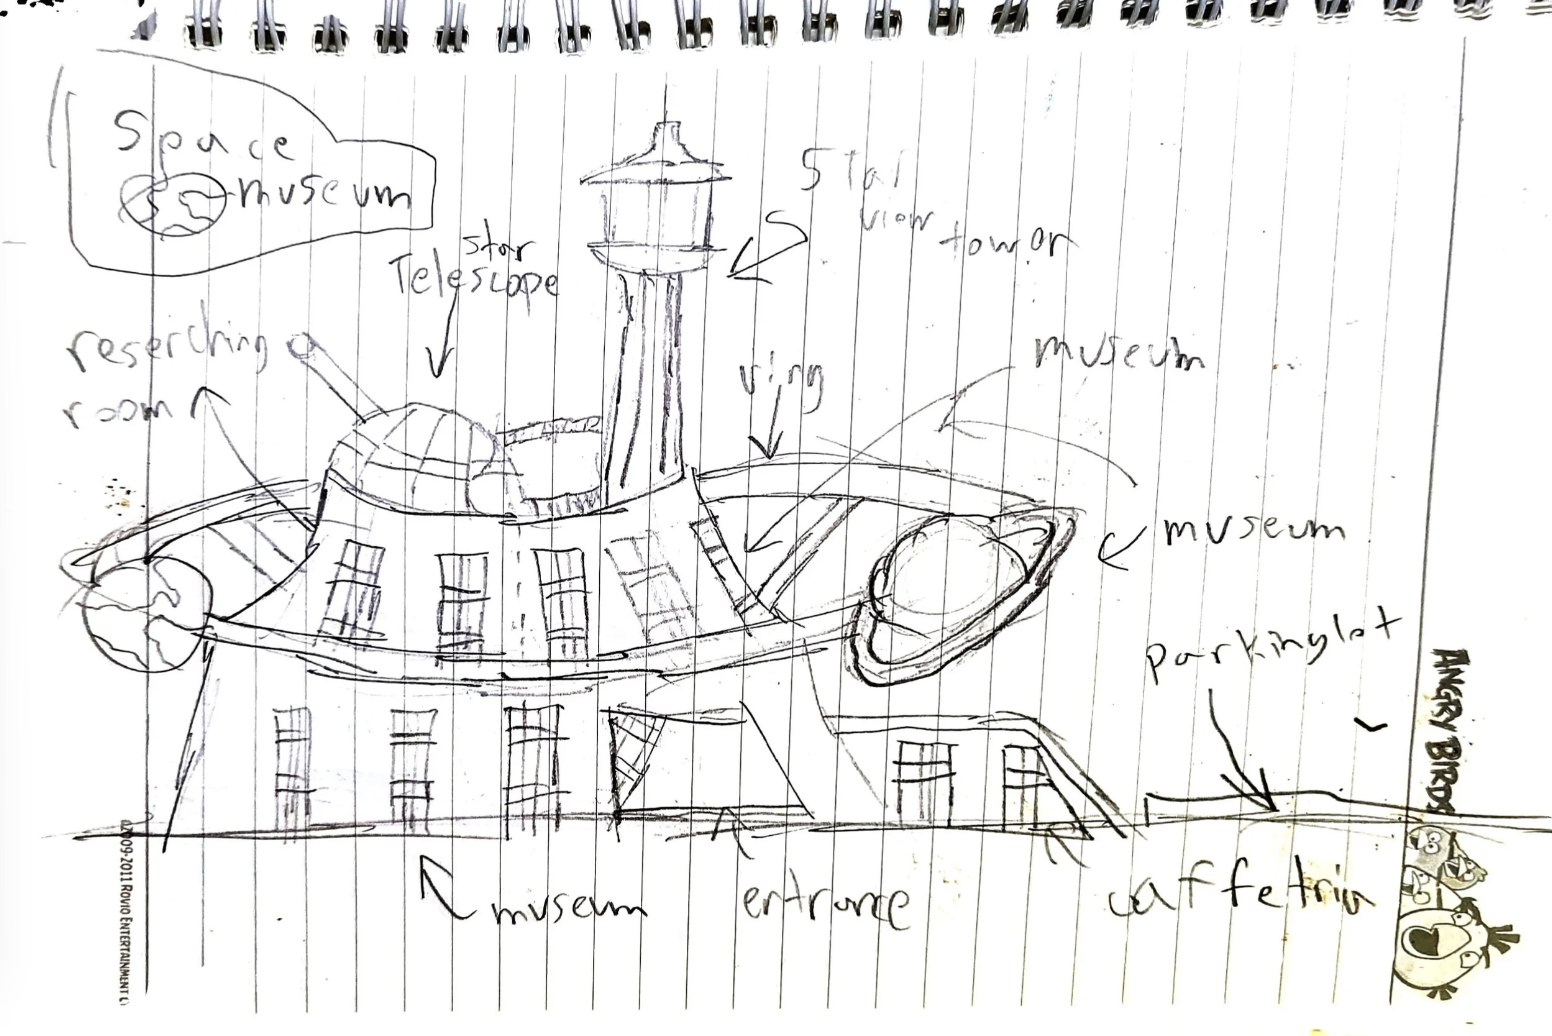 Space
museum
Star
view
tower
star
Telescope
reserching
room
ring
museum
museum
parkinglot
ANGRY BIRDS
museum
entrance
caffetria
©2009-2011 ROVIO ENTERTAINMENT